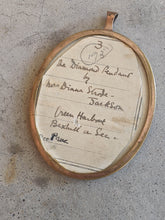 3
The Diamond Pendant
by
Mrs Diana Strode-
Jackson
Green Harbour
Bexhill on Sea.